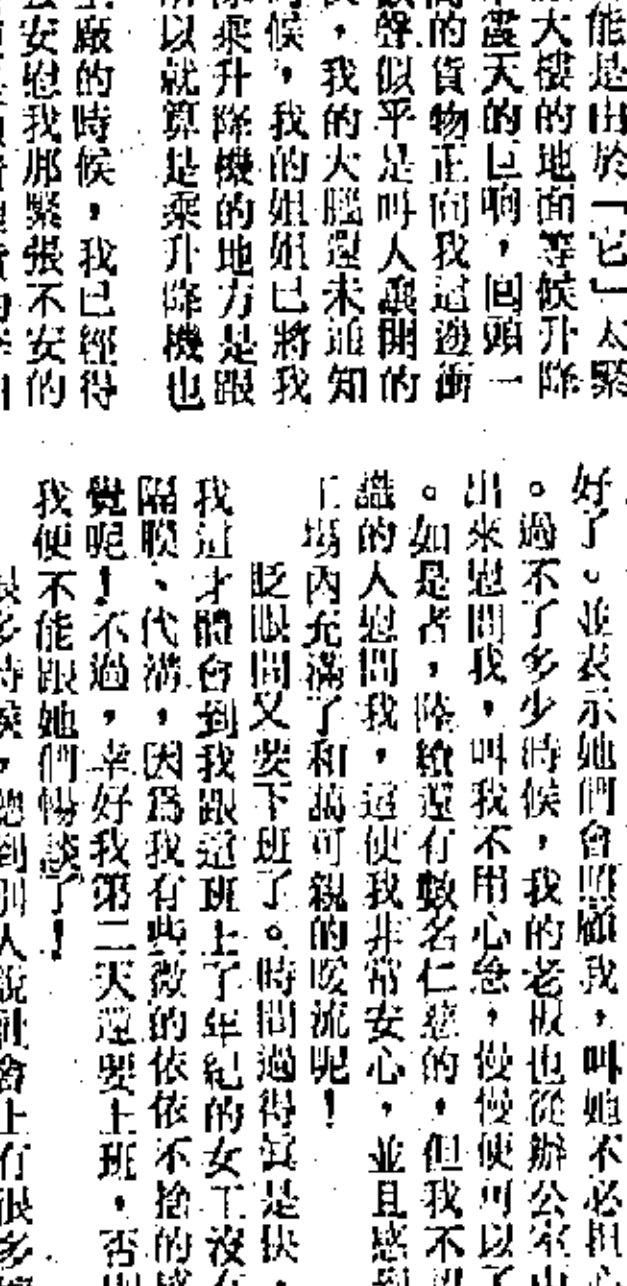 能是由於「它」太緊
大樓的地面等候升降
震天的巨响,回頭一
的貨物正向我這邊衝
聲似乎是叫人讓開的
,我的大腦還未通知
候,我的姐姐已將我
乘升降機的地方是跟
以就算是乘升降機也
廠的時候,我已經得
安慰我那緊張不安的
好了。並表示她們會照顧我,叫她不必担心
。過不了多少時候,我的老板也從辦公室
出來慰問我,叫我不用心急,慢慢便可以了
。如是者,陸續還有數名仁慈的,但我不
識的人慰問我,這使我非常安心,並且感
工場內充滿了和藹可親的暖流呢!
眨眼間又要下班了。時間過得真是快,
我這才體會到我跟這班上了年紀的女工沒
隔膜、代溝,因為我有些微的依依不捨的
覺呢!不過,幸好我第二天還要上班,否
我便不能跟她們暢談了!
多時候,聽到別人說社會上有很多